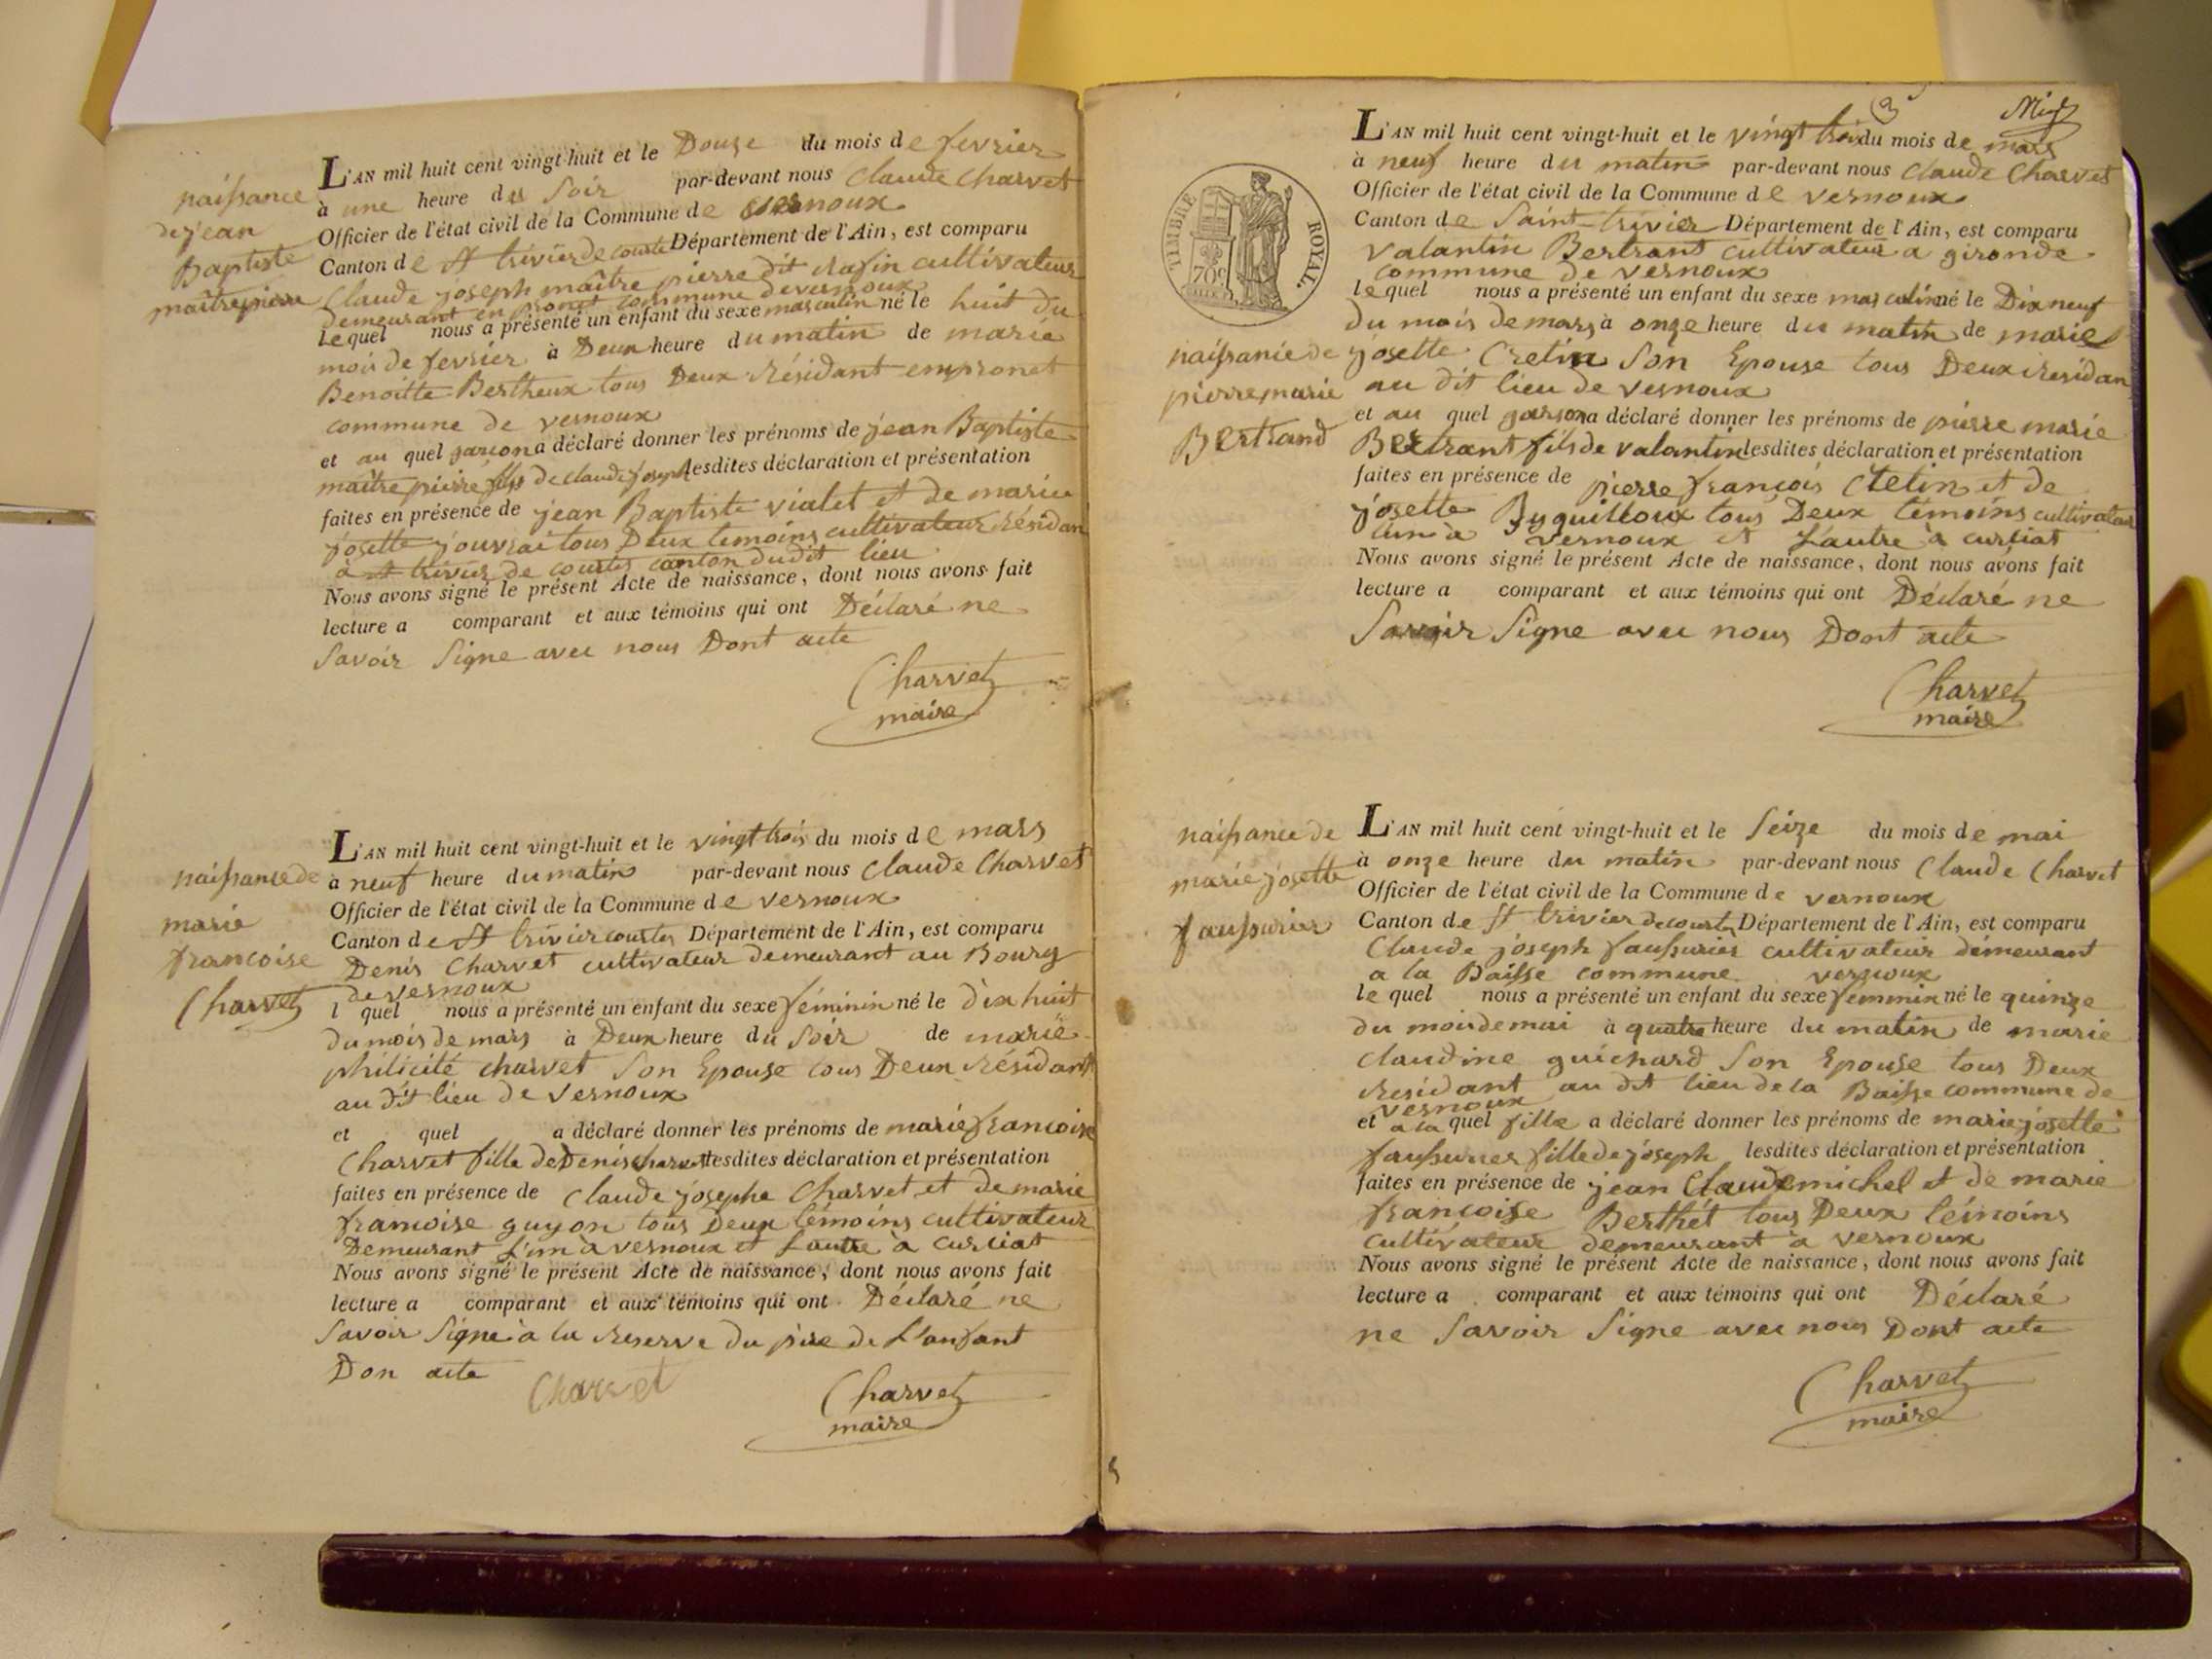 naissance
de jean
Baptiste
maitrepierre
L'AN mil huit cent vingt-huit et le Douze du mois de fevrier
à une heure du Soir par-devant nous Claude Charvet
Officier de l'état civil de la Commune de vernoux
Canton de St trivier de courte Département de l'Ain, est comparu
Claude joseph maître pierre dit rafin cultivateur
Demeurant en pronet commune de vernoux
Le quel nous a présenté un enfant du sexe masculin né le huit du
mois de fevrier à Deux heure du matin de marie
Benoitte Bertheux tous Deux résidant empronet
commune de vernoux
et au quel garcon a déclaré donner les prénoms de jean Baptiste
maitre pierre fils de claude joseph lesdites déclaration et présentation
faites en présence de jean Baptiste vialet et de marie
josette jouvrai tous Deux temoins cultivateur résidan
à St trivier de courtes canton du dit lieu
Nous avons signé le présent Acte de naissance, dont nous avons fait
lecture a comparant et aux témoins qui ont Déclaré ne
Savoir Signe avec nous Dont acte
Charvet
maire
naissance de
marie
francoise
Charvet
L'AN mil huit cent vingt-huit et le vingt trois du mois de mars
à neuf heure du matin par-devant nous Claude Charvet
Officier de l'état civil de la Commune de vernoux
Canton de St trivier courtes Département de l'Ain, est comparu
Denis Charvet cultivateur demeurant au Bourg
de vernoux
l quel nous a présenté un enfant du sexe féminin né le dix huit
du mois de mars à Deux heure du Soir de marie
philicité charvet Son Epouse tous Deux résidant
au dit lieu de vernoux
et quel a déclaré donner les prénoms de marie francoise
Charvet fille de Denis charvet lesdites déclaration et présentation
faites en présence de Claude josephe Charvet et de marie
francoise guyon tous Deux témoins cultivateur
Demeurant L'un à vernoux et Lautre à curciat
Nous avons signé le présent Acte de naissance, dont nous avons fait
lecture a comparant et aux témoins qui ont Déclaré ne
Savoir Signe à la reserve du père de L'anfant
Don acte
Charvet
Charvet
maire
3
TIMBRE ROYAL.
70c
naissance de
pierre marie
Bertrand
L'AN mil huit cent vingt-huit et le vingt trois du mois de mars
à neuf heure du matin par-devant nous Claude Charvet
Officier de l'état civil de la Commune de vernoux
Canton de Saint-trivier Département de l'Ain, est comparu
valantin Bertrant cultivateur a gironde
commune de vernoux
le quel nous a présenté un enfant du sexe masculin né le Dix neuf
du mois de mars à onze heure du matin de marie
josette Cretin Son Epouse tous Deux residan
au dit lieu de vernoux
et au quel garson a déclaré donner les prénoms de pierre marie
Bertrant fils de valantin lesdites déclaration et présentation
faites en présence de pierre françois Cretin et de
josette Buguilloux tous Deux témoins cultivateur
lun à vernoux et Lautre à curciat
Nous avons signé le présent Acte de naissance, dont nous avons fait
lecture a comparant et aux témoins qui ont Déclaré ne
Savoir Signe avec nous Dont acte
Charvet
maire
naissance de
marie josette
faussurier
L'AN mil huit cent vingt-huit et le Seize du mois de mai
à onze heure du matin par-devant nous Claude Charvet
Officier de l'état civil de la Commune de vernoux
Canton de St trivier de courtes Département de l'Ain, est comparu
Claude joseph faussurier cultivateur demeurant
a la Baisse commune vernoux
le quel nous a présenté un enfant du sexe femmin né le quinze
du mois de mai à quatre heure du matin de marie
Claudine guichard Son Epouse tous Deux
residant au dit lieu de la Baisse commune de
vernoux
et a la quel fille a déclaré donner les prénoms de marie josette
faussurier fille de joseph lesdites déclaration et présentation
faites en présence de jean Claude michel et de marie
francoise Berthet tous Deux témoins
cultivateur demeurant à vernoux
Nous avons signé le présent Acte de naissance, dont nous avons fait
lecture a comparant et aux témoins qui ont Déclaré
ne Savoir Signe avec nous Dont acte
Charvet
maire